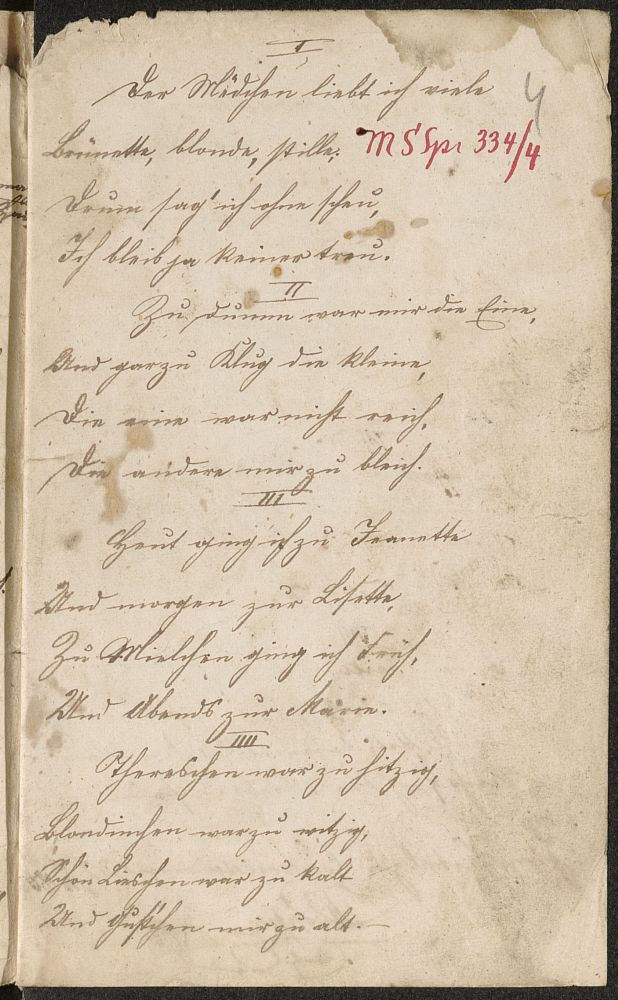 I
Der Mädchen liebt ich viele
4
Brünette, blonde, stille,
MS Spr 334/4
Drum sag' ich ohne scheu,
Ich bleib ja keiner treu.
II
Zu dumm war mir die Eine,
Und gar zu Klug die kleine,
Die eine war nicht reich,
Die andere mir zu bleich.
III
Heut ging ich zu Jeanette
Und morgen zur Lisette,
Zu Mielchen ging ich früh,
Und Abends zur Marie.
IIII
Thereschen war zu hitzig,
Blondinchen war zu witzig,
Schön Lieschen war zu kalt
Und Gustchen mir zu alt.